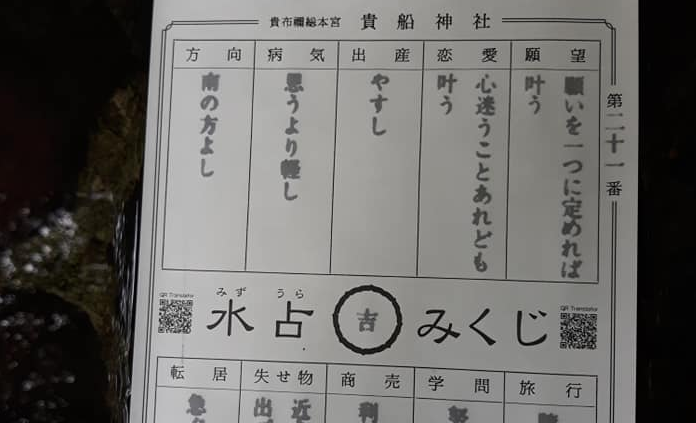 貴布禰総本宮 貴船神社
第二十一番
願望
願いを一つに定めれば
叶う
恋愛
心迷うことあれども
叶う
出産
やすし
病気
思うより軽し
方向
南の方よし
QR Translator
みず うら
水占 吉 みくじ
QR Translator
旅行
学問
商売
利
失せ物
近
出
転居
急